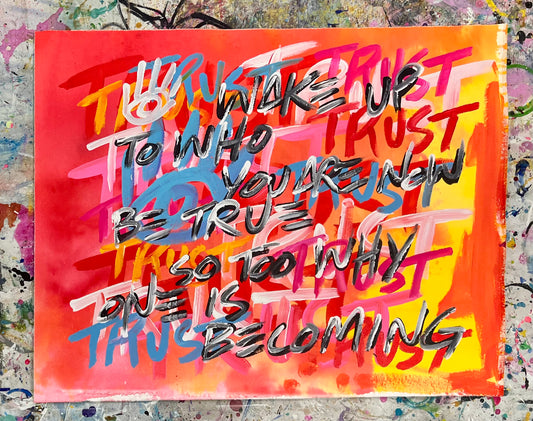 TRUST TRUST
WAKE UP
TRUST
TO WHO
YOU ARE NOW
TRUST
BE TRUE
TRUST
SO TOO WHY
TRUST
ONE IS
TRUST BECOMING
TRUST